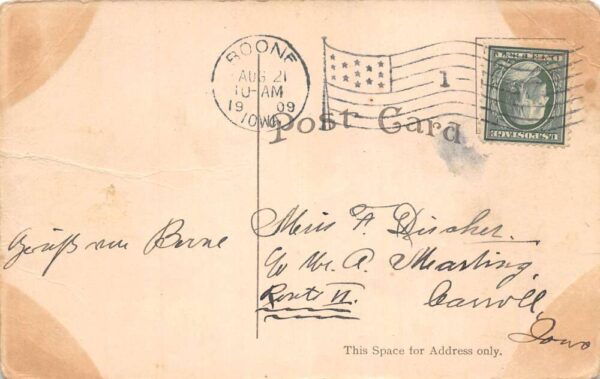 BOONE
AUG 21
10-AM
19 09
IOWA
1
U.S. POSTAGE
Post Card
Gruß von Boone
Miss F. Discher.
c/o Mr. A. Mearting,
Route II. Carroll,
Iowa
This Space for Address only.